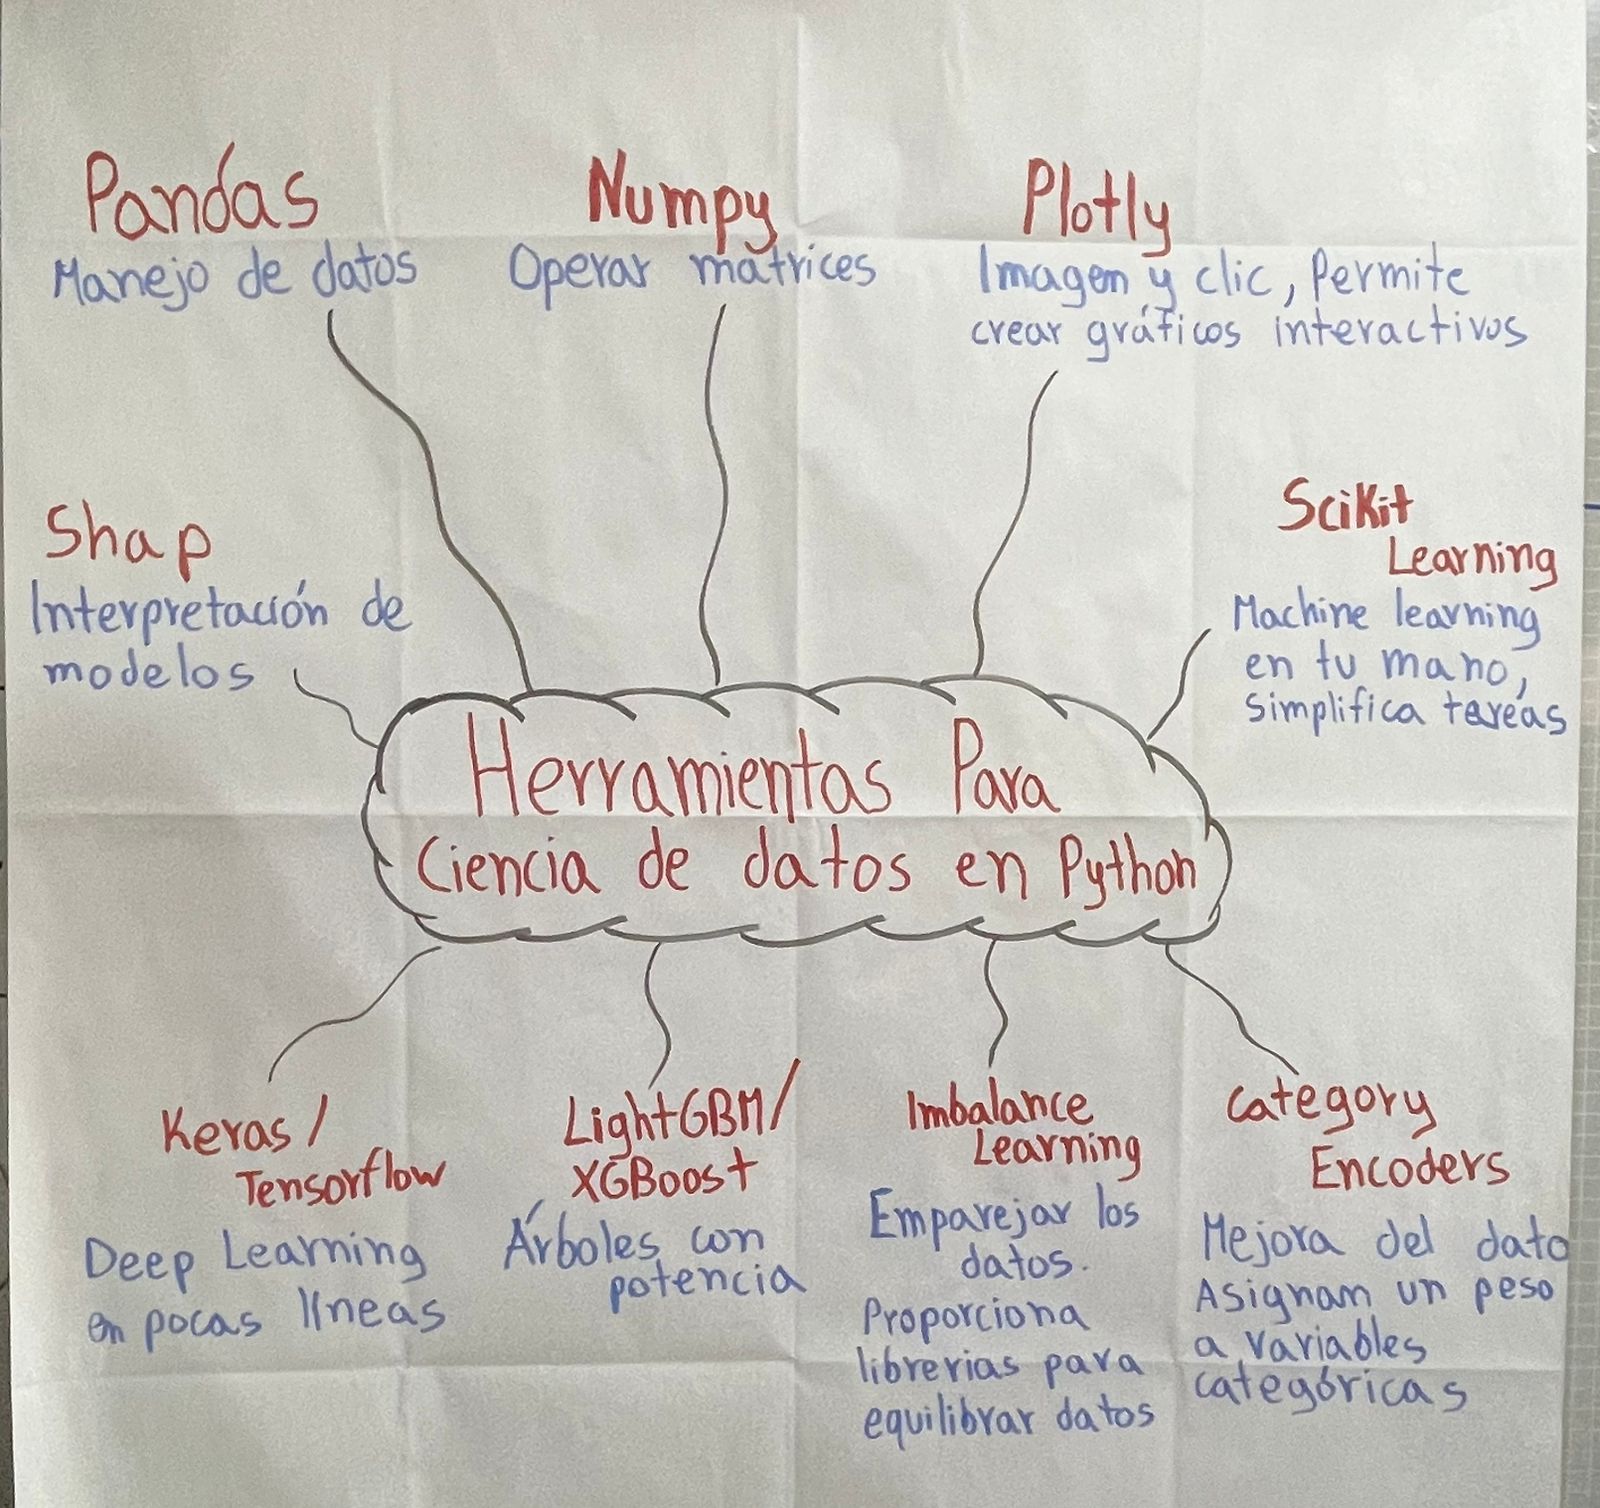 Pandas
Manejo de datos
Numpy
Operar matrices
Plotly
Imagen y clic, Permite
crear gráficos interactivos
Shap
Interpretación de
modelos
SciKit
Learning
Machine learning
en tu mano,
Simplifica tareas
Herramientas Para
Ciencia de datos en Python
Keras /
Tensorflow
Deep Learning
en pocas líneas
LightGBM/
XGBoost
Árboles con
potencia
Imbalance
Learning
Emparejar los
datos.
Proporciona
librerias para
equilibrar datos
Category
Encoders
Mejora del dato
Asignam un peso
a variables
categóricas